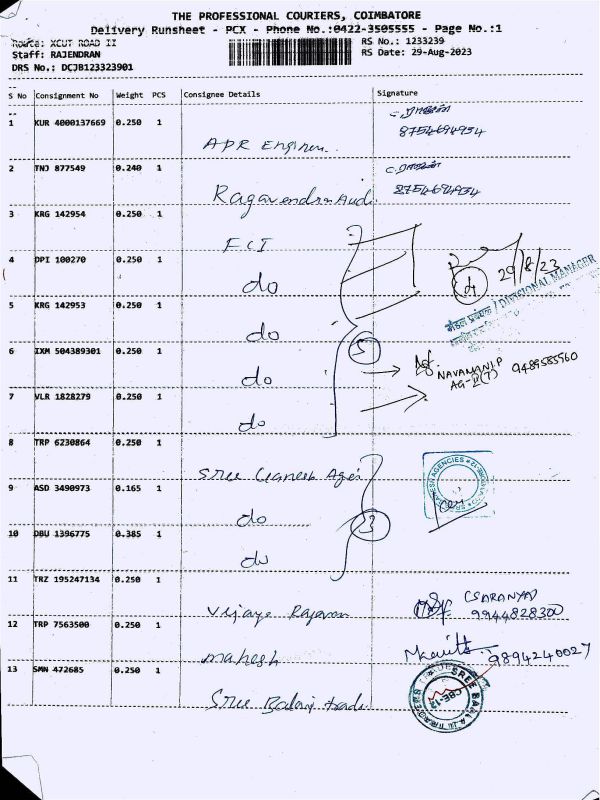 THE PROFESSIONAL COURIERS, COIMBATORE
Delivery Runsheet - PCX - Phone No.:0422-3505555 - Page No.:1
Route: XCUT ROAD II
RS No.: 1233239
Staff: RAJENDRAN
RS Date: 29-Aug-2023
DRS No.: DCJB123323901
S No Consignment No Weight PCS Consignee Details Signature
1 KUR 4000137669 0.250 1
8754694934
APR Engineer..
2 TNJ 877549 0.240 1
8754694934
Ragavendra Audi
3 KRG 142954 0.250 1
FCI
4 DPI 100270 0.250 1
do
29/8/23
मंडल प्रबंधक / DIVISIONAL MANAGER
5 KRG 142953 0.250 1
do
6 IXM 504389301 0.250 1
5
do
NAVAMANI P 9489585960
AG-II(T)
7 VLR 1828279 0.250 1
do
8 TRP 6230864 0.250 1
Sree Ganesh Agen
9 ASD 3490973 0.165 1
do
3
10 DBU 1396775 0.385 1
do
11 TRZ 195247134 0.250 1
Vijaye
(SARANYA)
9944828300
12 TRP 7563500 0.250 1
mahesh
9894240027
13 SMN 472685 0.250 1
Sree Balaji trade
SREE BALAJI TRADERS
CBE-12